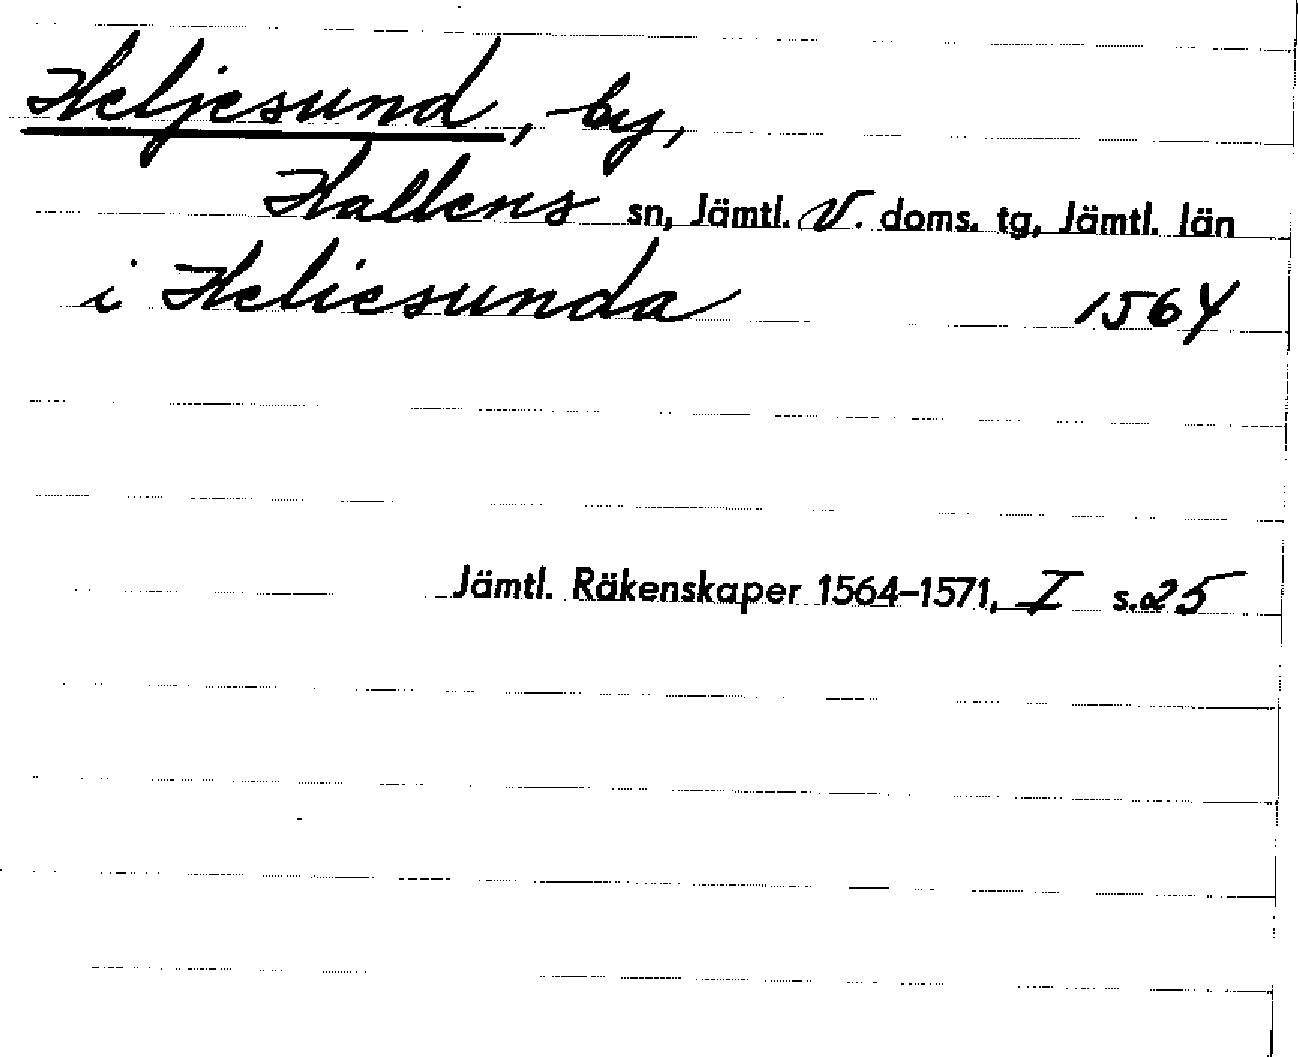 Heljesund, by,
Hallens sn, Jämtl. V. doms. tg, Jämtl. län
i Heliesunda 1564
Jämtl. Räkenskaper 1564–1571, I s. 25